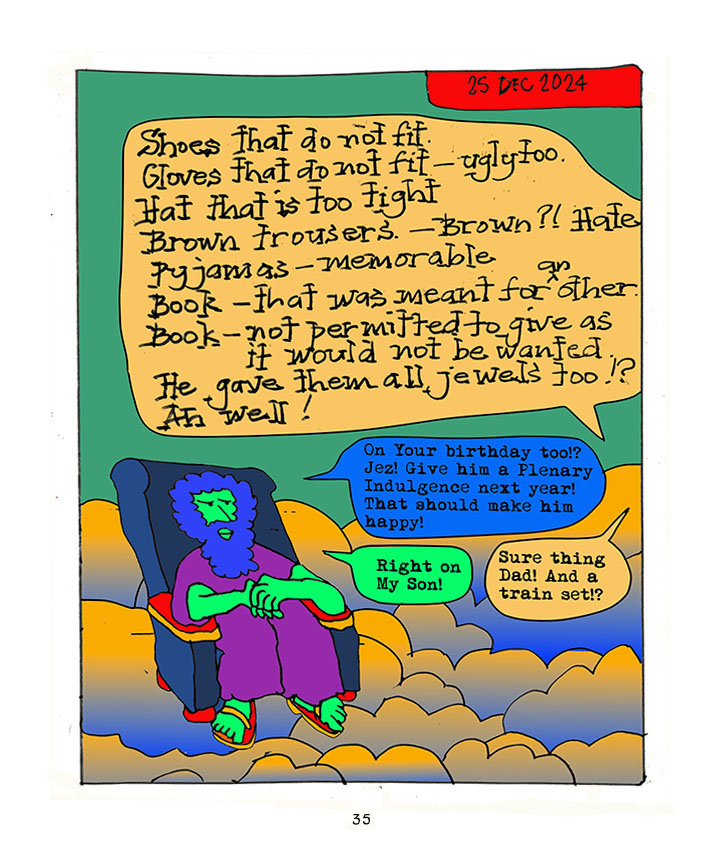 25 DEC 2024
Shoes that do not fit.
Gloves that do not fit – ugly too.
Hat that is too tight
Brown trousers. – Brown?! Hate
Pyjamas – memorable
Book – that was meant for an other.
Book – not permitted to give as
it would not be wanted.
He gave them all jewels too!?
Ah well!
On Your birthday too!?
Jez! Give him a Plenary
Indulgence next year!
That should make him
happy!
Right on
My Son!
Sure thing
Dad! And a
train set!?
35